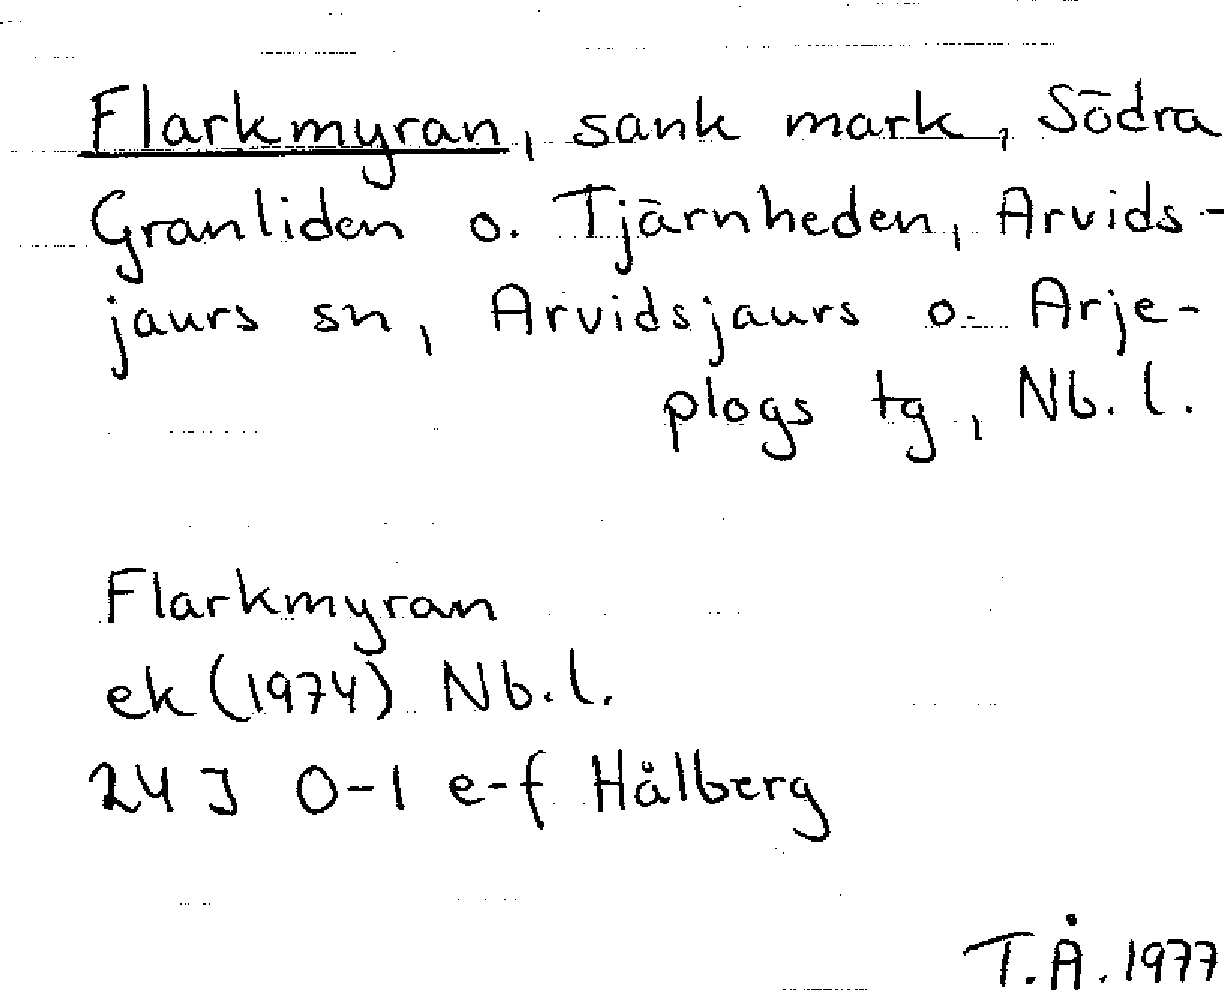 Flarkmyran, sank mark, Södra
Granliden o. Tjärnheden, Arvids-
jaurs sn, Arvidsjaurs o. Arje-
plogs tg, Nb. l.
Flarkmyran
ek (1974) Nb. l.
24 J 0-1 e-f Hålberg
T.Å. 1977